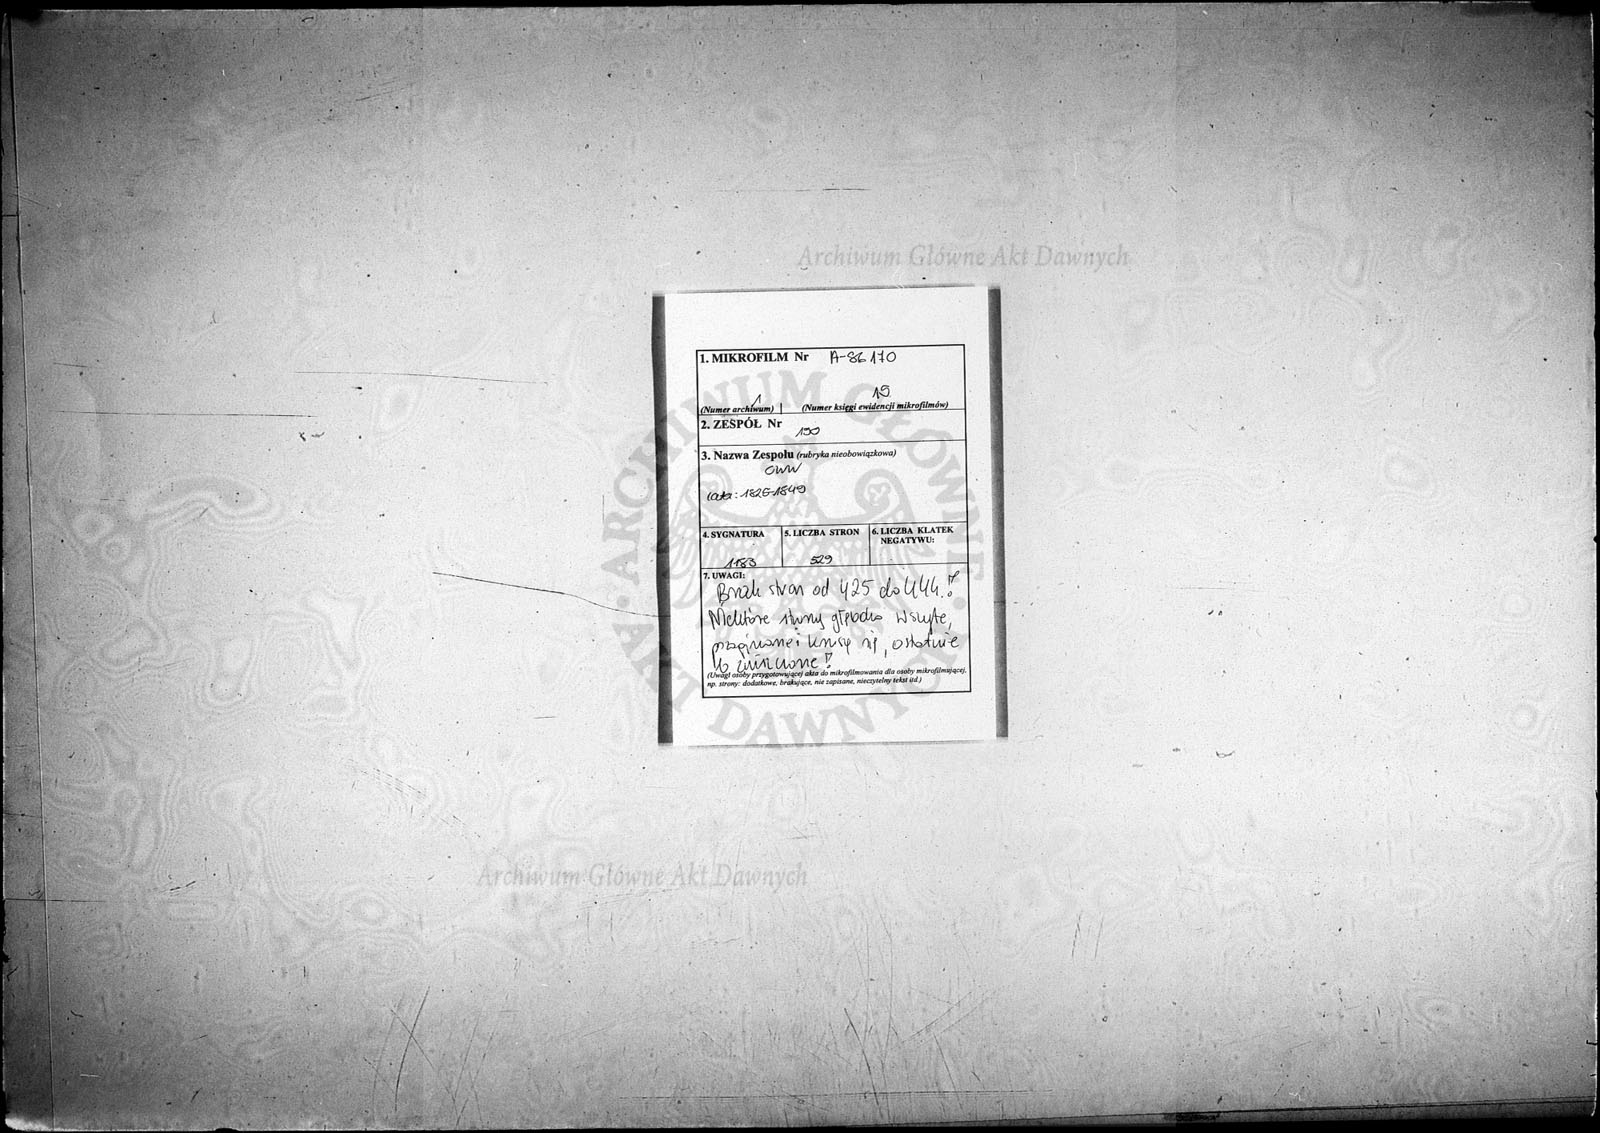 Archiwum Główne Akt Dawnych
1. MIKROFILM Nr A-86170
1 19
(Numer archiwum) (Numer księgi ewidencji mikrofilmów)
2. ZESPÓŁ Nr 190
3. Nazwa Zespołu (rubryka nieobowiązkowa)
OWW
lata: 1826-1849
4. SYGNATURA 5. LICZBA STRON 6. LICZBA KLATEK
NEGATYWU:
1183 529
7. UWAGI:
Brak stron od 425 do 444!
Niektóre strony głęboko wszyte,
i kruszą się, ostatnie
b zniszczone!
(Uwagi osoby przygotowującej akta do mikrofilmowania dla osoby mikrofilmującej,
np. strony: dodatkowe, brakujące, nie zapisane, nieczytelny tekst itd.)
ARCHIWUM GŁÓWNE AKT DAWNYCH
Archiwum Główne Akt Dawnych